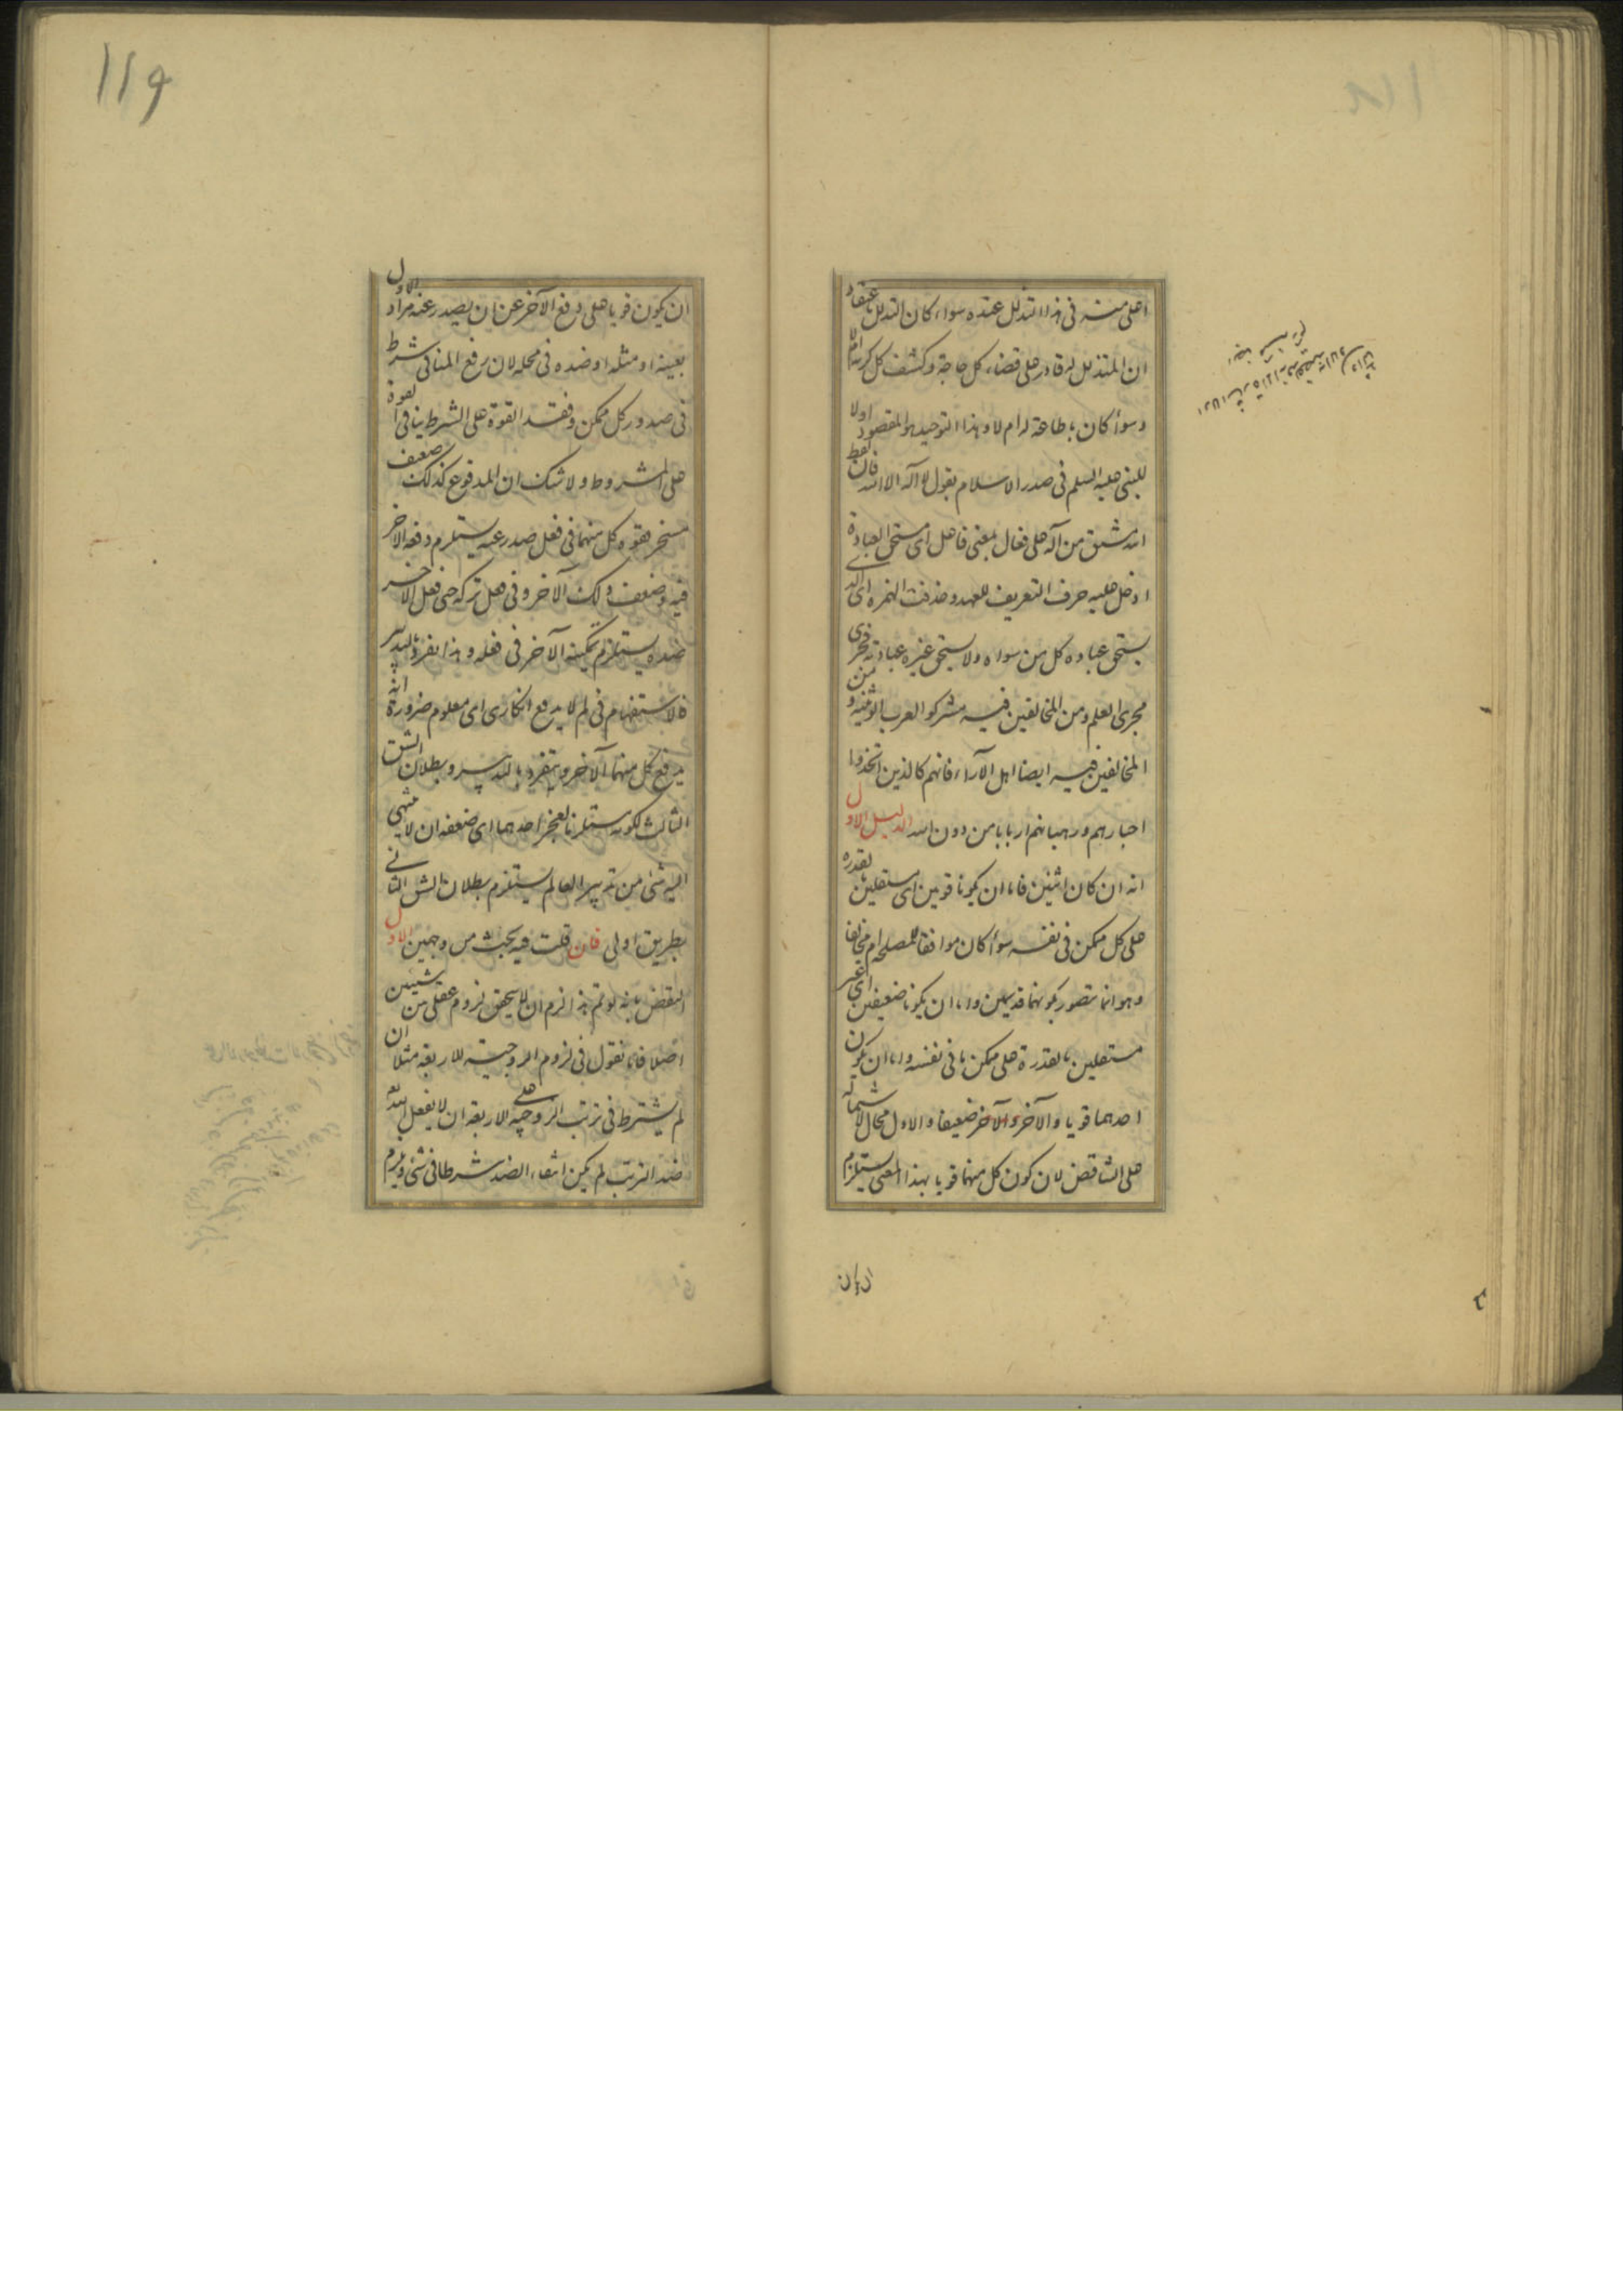 اعلى منه فى هذا التذلل عنده سواء كان التذلل باعتقاد
ان المتذلل له قادر على قضاء كل حاجة وكشف كل كربة ام لا
وسوأ كان بطاعة له ام لا وهذا التوحيد هو المقصود اولا
للنبى عليه السلم فى صدر الاسلام بقول لا اله الا الله فان لفظ
الله مشتق من اله على فعال بمعنى فاعل اى مستحق العبادة
ادخل عليه حرف التعريف للعهد وحذفت الهمزه اى الذى
يستحق عباده كل من سواه ولا يستحق غيره عبادته فجرى
مجرى العلم ومن المخالفين فيه مشركو العرب الوثنيه ومن
المخالفين فيه ايضا اهل الآراء فانهم كالذين اتخذوا
احبارهم ورهبانهم اربابا من دون الله الدليل الاول
انه ان كان اثنين فاما ان يكونا قويين اى مستقلين بقدره
على كل ممكن فى نفسه سوأ كان موافقا للمصلحه ام مخالفا
وهو انما يتصور بكونهما قديمين واما ان يكونا ضعيفين اى غير
مستقلين بالقدرة على ممكن ما فى نفسه واما ان يكون
احدهما قويا والآخر والآخر ضعيفا والاول محال لاشتماله
على التناقض لان كون كل منهما قويا بهذا المعنى يستلزم
ان يكون
١١٩
ان يكون قويا على دفع الآخر عن ان يصدر عنه مراد الاول
بعينه او مثله او ضده فى محله لان رفع المنافى شرط
فى صدور كل ممكن وفقد القوة على الشرط ينافى القوة
على المشروط ولا شك ان المدفوع كذلك ضعيف
مسخر فقوه كل منهما فى فعل صدر عنه يستلزم دفعه الآخر
فيه وضعف ذلك الآخر وفى فعل تركه حتى فعل الآخر
ضده يستلزم تمكينه الآخر فى فعله وهذا تفرد بالتدبير
فالاستفهام فى لم لا يدفع انكارى اى معلوم ضرورة انه
يدفع كل منهما الآخر ويتفرد بالتدبير وبطلان الشق
الثالث لكونه مستلزما لعجز احدهما اى ضعفه ان لا ينتهى
اليه شئ من تدبير العالم يستلزم بطلان الشق الثانى
بطريق اولى فان قلت فيه بحث من وجهين الاول
النقض بانه لو تم هذا لزم ان لا يتحقق لزوم عقلى بين شيئين
اصلا فانا نقول فى لزوم الزوجيته للاربعه مثلا ان
لم يشترط فى ترتب الزوجيه على الاربعه ان لا يفعل الله تعه
ضد الترتب لم يكن انتفاء الضد شرطا فى شئ ويلزم